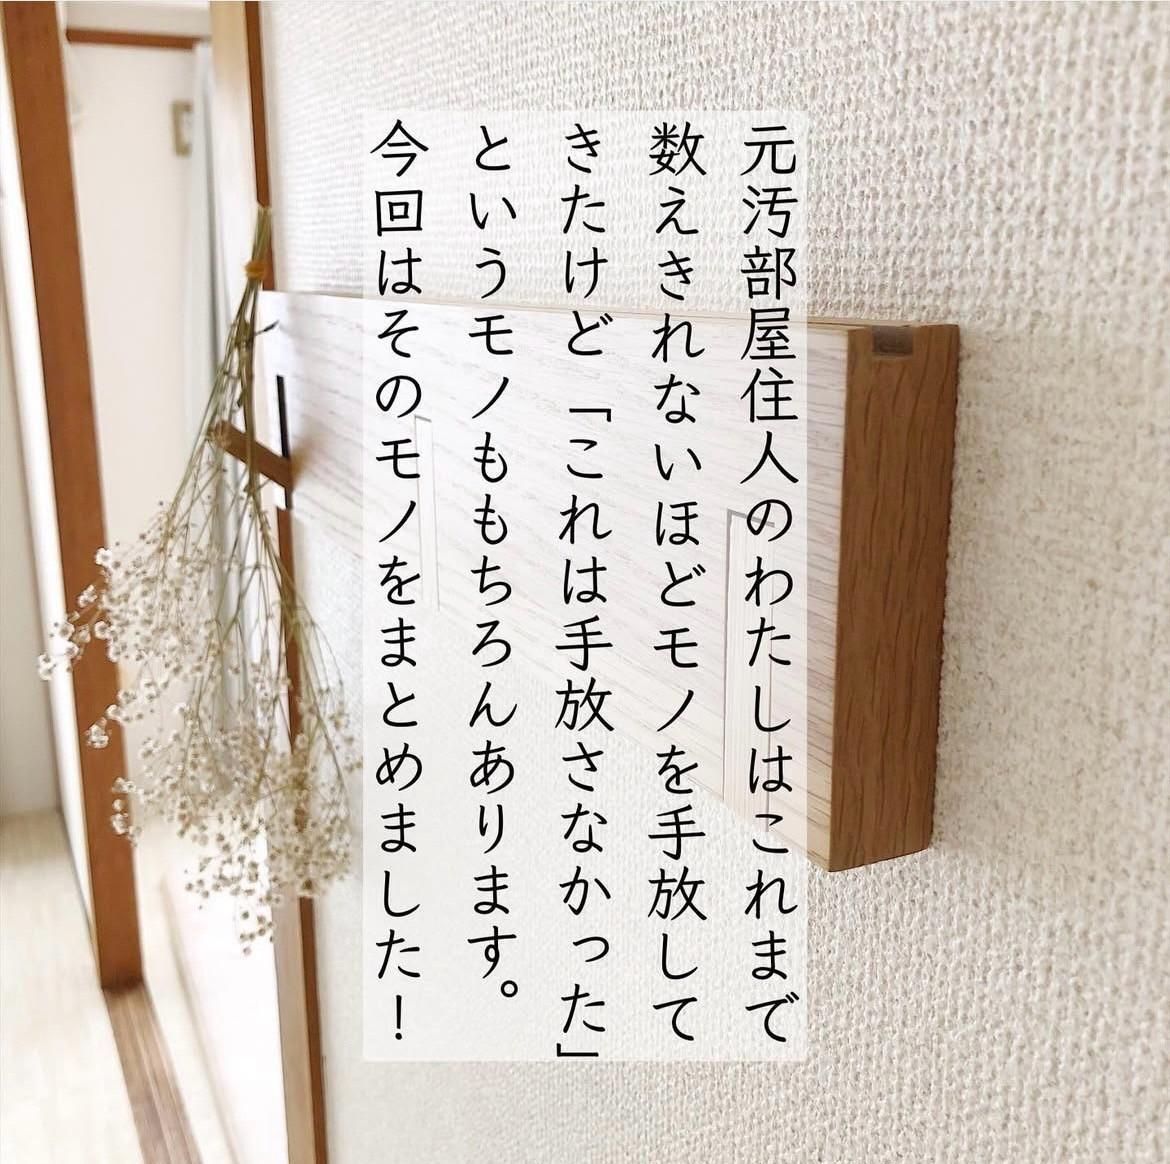 元汚部屋住人のわたしはこれまで
数えきれないほどモノを手放して
きたけど「これは手放さなかった」
というモノももちろんあります。
今回はそのモノをまとめました！